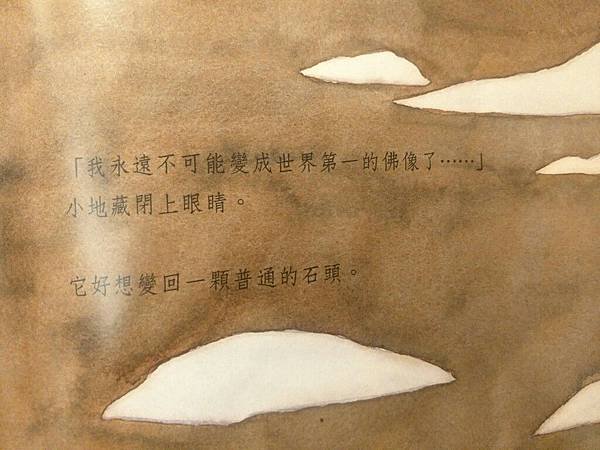 「我永遠不可能變成世界第一的佛像了⋯⋯」
小地藏閉上眼睛。
它好想變回一顆普通的石頭。